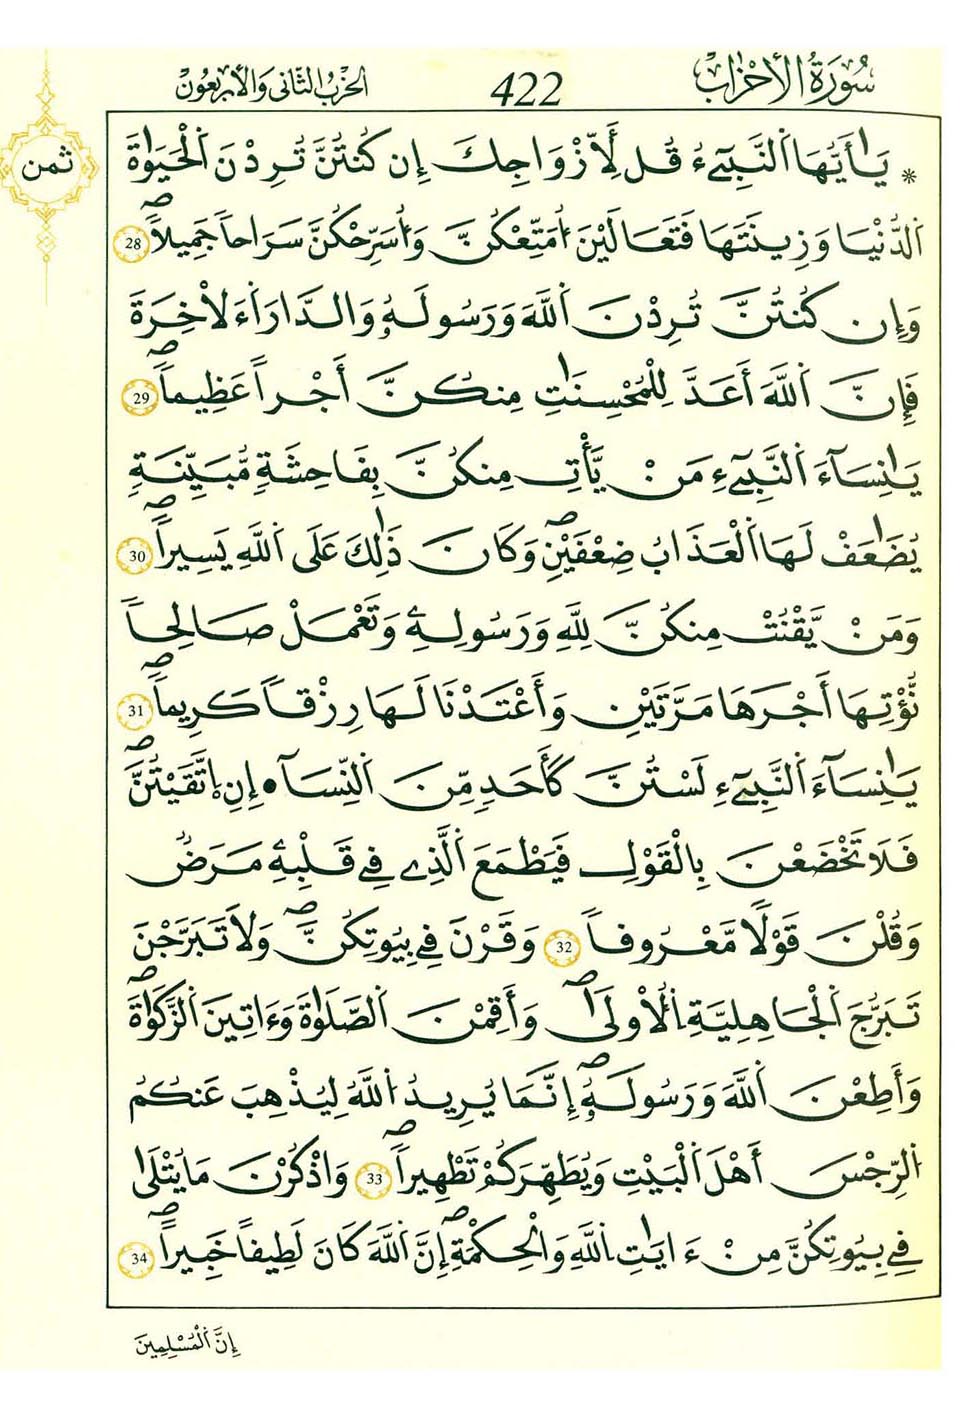 سُورَةُ الأَحْزَابِ
422
الحِزْبُ الثَّانِي وَالأَرْبَعُونَ
ثمن
* يَٰأَيُّهَا اَ۬لنَّبِےٓءُ قُل لِّأَزْوَٰجِكَ إِن كُنتُنَّ تُرِدْنَ اَ۬لْحَيَوٰةَ
اَ۬لدُّنْيَا وَزِينَتَهَا فَتَعَالَيْنَ أُمَتِّعْكُنَّ وَأُسَرِّحْكُنَّ سَرَاحاٗ جَمِيلاٗۖ 28
وَإِن كُنتُنَّ تُرِدْنَ اَ۬للَّهَ وَرَسُولَهُۥ وَالدَّارَ اَ۬ءَلْأخِرَةَ
فَإِنَّ اَ۬للَّهَ أَعَدَّ لِلْمُحْسِنَٰتِ مِنكُنَّ أَجْراً عَظِيماٗۖ 29
يَٰنِسَآءَ اَ۬لنَّبِےٓءِ مَنْ يَّأْتِ مِنكُنَّ بِفَاحِشَةٖ مُّبَيِّنَةٖ
يُضَٰعَفْ لَهَا اَ۬لْعَذَابُ ضِعْفَيْنِۖ وَكَانَ ذَٰلِكَ عَلَي اَ۬للَّهِ يَسِيراٗۖ 30
وَمَنْ يَّقْنُتْ مِنكُنَّ لِلهِ وَرَسُولِهِۦ وَتَعْمَلْ صَالِحاٗ
نُّؤْتِهَا أَجْرَهَا مَرَّتَيْنِ وَأَعْتَدْنَا لَهَا رِزْقاٗ كَرِيماٗۖ 31
يَٰنِسَآءَ اَ۬لنَّبِےٓءِ لَسْتُنَّ كَأَحَدٖ مِّنَ اَ۬لنِّسَآءِ اِنِ اِ۪تَّقَيْتُنَّۖ
فَلَا تَخْضَعْنَ بِالْقَوْلِ فَيَطْمَعَ اَ۬لَّذِے فِے قَلْبِهِۦ مَرَضٞ
وَقُلْنَ قَوْلاٗ مَّعْرُوفاٗۖ 32 وَقَرْنَ فِے بِيُوتِكُنَّۖ وَلَا تَبَرَّجْنَ
تَبَرُّجَ اَ۬لْجَاهِلِيَّةِ اِ۬لُاولَيٰۖ وَأَقِمْنَ اَ۬لصَّلَوٰةَ وَءَاتِينَ اَ۬لزَّكَوٰةَۖ
وَأَطِعْنَ اَ۬للَّهَ وَرَسُولَهُۥۖ إِنَّمَا يُرِيدُ اُ۬للَّهُ لِيُذْهِبَ عَنكُمُ
اُ۬لرِّجْسَ أَهْلَ اَ۬لْبَيْتِ وَيُطَهِّرَكُمْ تَطْهِيراٗۖ 33 وَاذْكُرْنَ مَا يُتْلَيٰ
فِے بِيُوتِكُنَّ مِنَ ءَايَٰتِ اِ۬للَّهِ وَالْحِكْمَةِۖ إِنَّ اَ۬للَّهَ كَانَ لَطِيفاً خَبِيراًۖ 34
إِنَّ اَ۬لْمُسْلِمِينَ